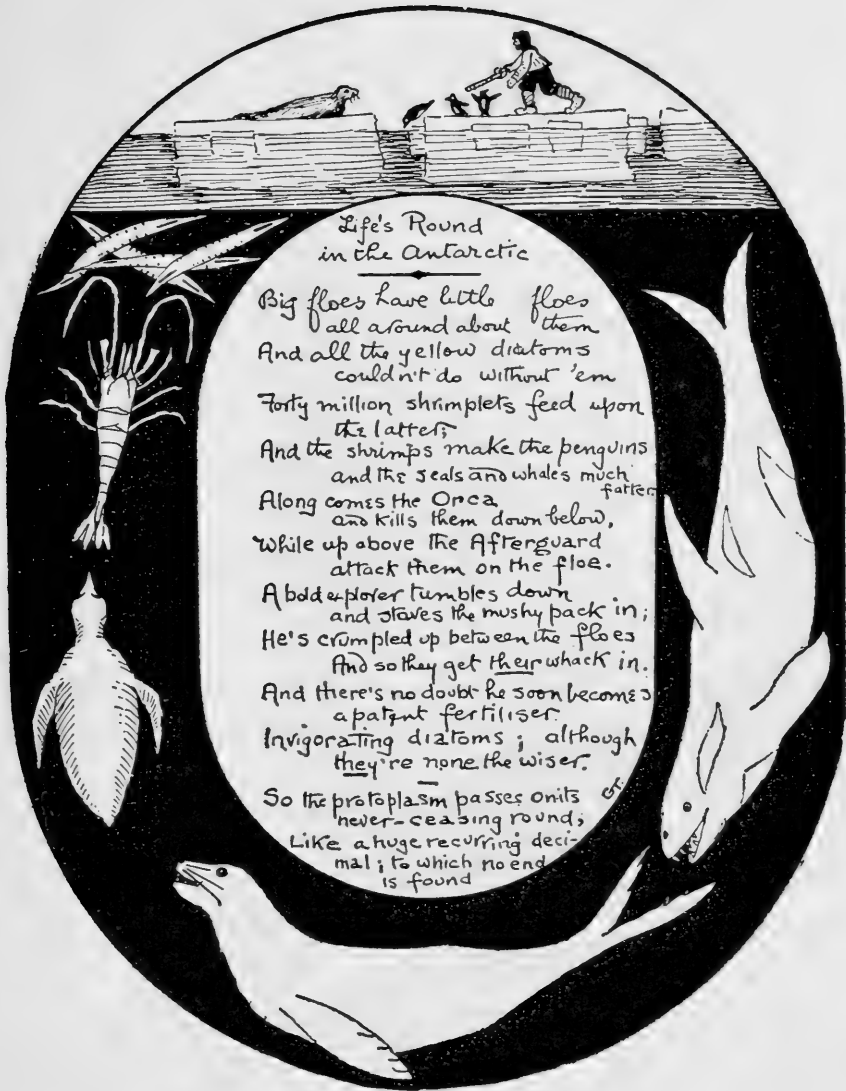 Life's Round
in the Antarctic
Big floes have little floes
all around about them
And all the yellow diatoms
couldn't do without 'em
Forty million shrimplets feed upon
the latter;
And the shrimps make the penguins
and the seals and whales much
fatter.
Along comes the Orca
and kills them down below,
While up above the Afterguard
attack them on the floe.
A bold explorer tumbles down
and staves the mushy pack in;
He's crumpled up between the floes
And so they get their whack in.
And there's no doubt he soon becomes
a patent fertiliser.
Invigorating diatoms; although
they're none the wiser.
So the protoplasm passes on its
never-ceasing round;
Like a huge recurring deci-
mal; to which no end
is found